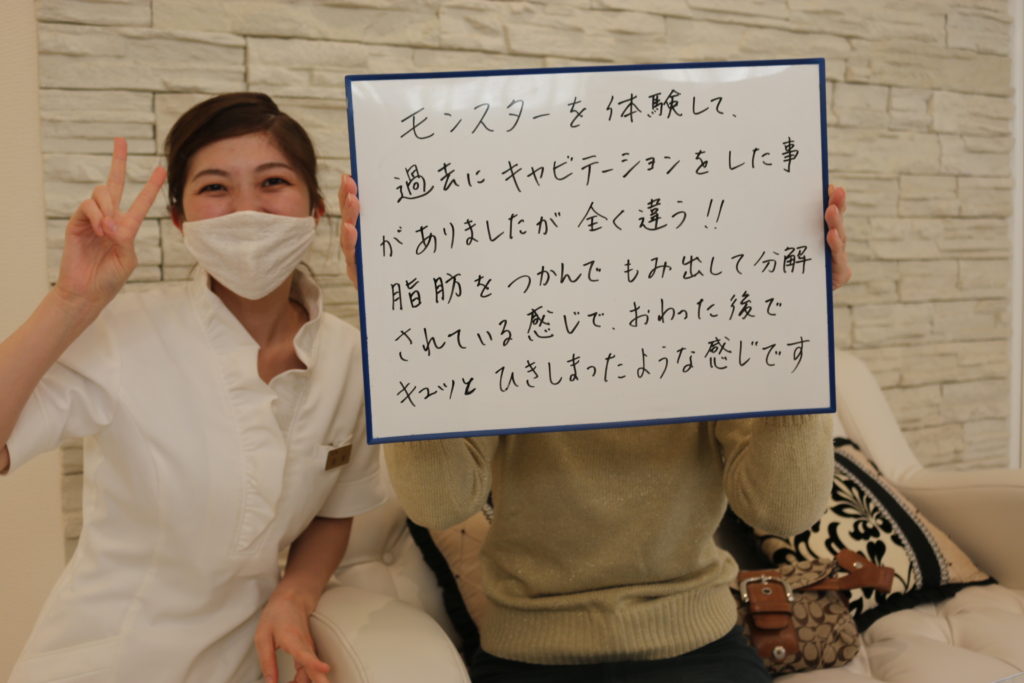 モンスターを体験して、
過去にキャビテーションをした事
がありましたが全く違う!!
脂肪をつかんでもみ出して分解
されている感じで、おわった後で
キュッとひきしまったような感じです